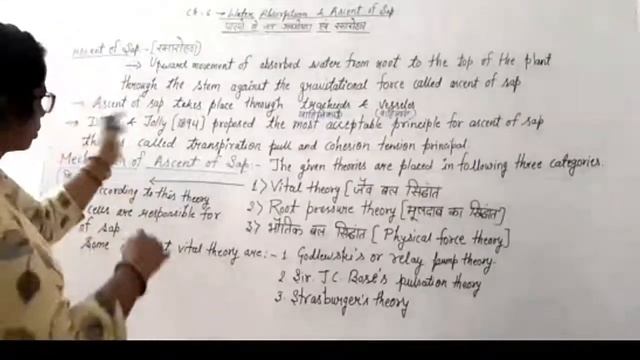 Ch-6 → Water Absorption & Ascent of Sap
पादपों में जल अवशोषण एवं रसारोहण
Ascent of Sap:- [रसारोहण]
→ Upward movement of absorbed water from root to the top of the plant
through the stem against the gravitational force called ascent of sap
→ Ascent of sap takes place through tracheids & vesseles
→ & Jolly [1894] proposed the most acceptable principle for ascent of sap
called transpiration pull and cohesion tension principal.
Mechanism of Ascent of Sap:- The given theories are placed in following three categories.
According to this theory
cells are responsible for
of sap
1> Vital theory [जैव बल सिद्धांत
2> Root pressure theory [मूलदाब का सिद्धांत]
3> भौतिक बल सिद्धांत [Physical force theory]
Some vital theory are:- 1 Godlewski's or relay pump theory.
2 Sir. J.C. Bose's pulsation theory
3. Strasburger's theory